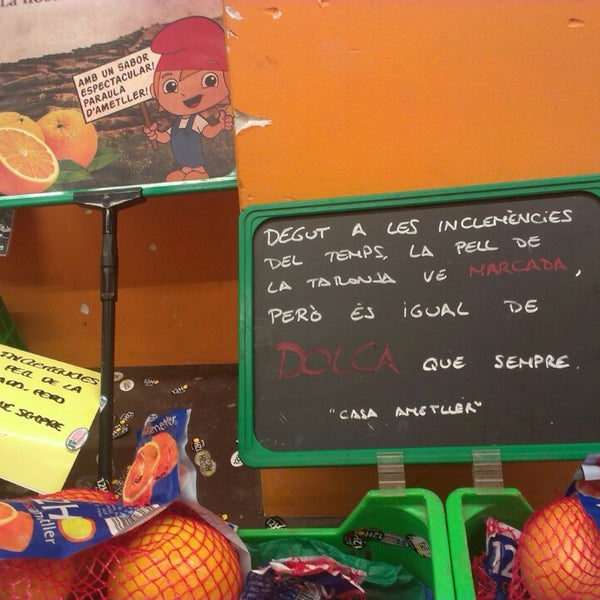 AMB UN SABOR
ESPECTACULAR!
PARAULA
D'AMETLLER!
DEGUT A LES INCLEMÈNCIES
DEL TEMPS, LA PELL DE
LA TARONJA VE MARCADA,
PERÒ ÉS IGUAL DE
DOLÇA QUE SEMPRE.
"CASA AMETLLER"
INCLEMENCIES
PELL DE LA
PERO
SEMPRE
12H
ametller
12